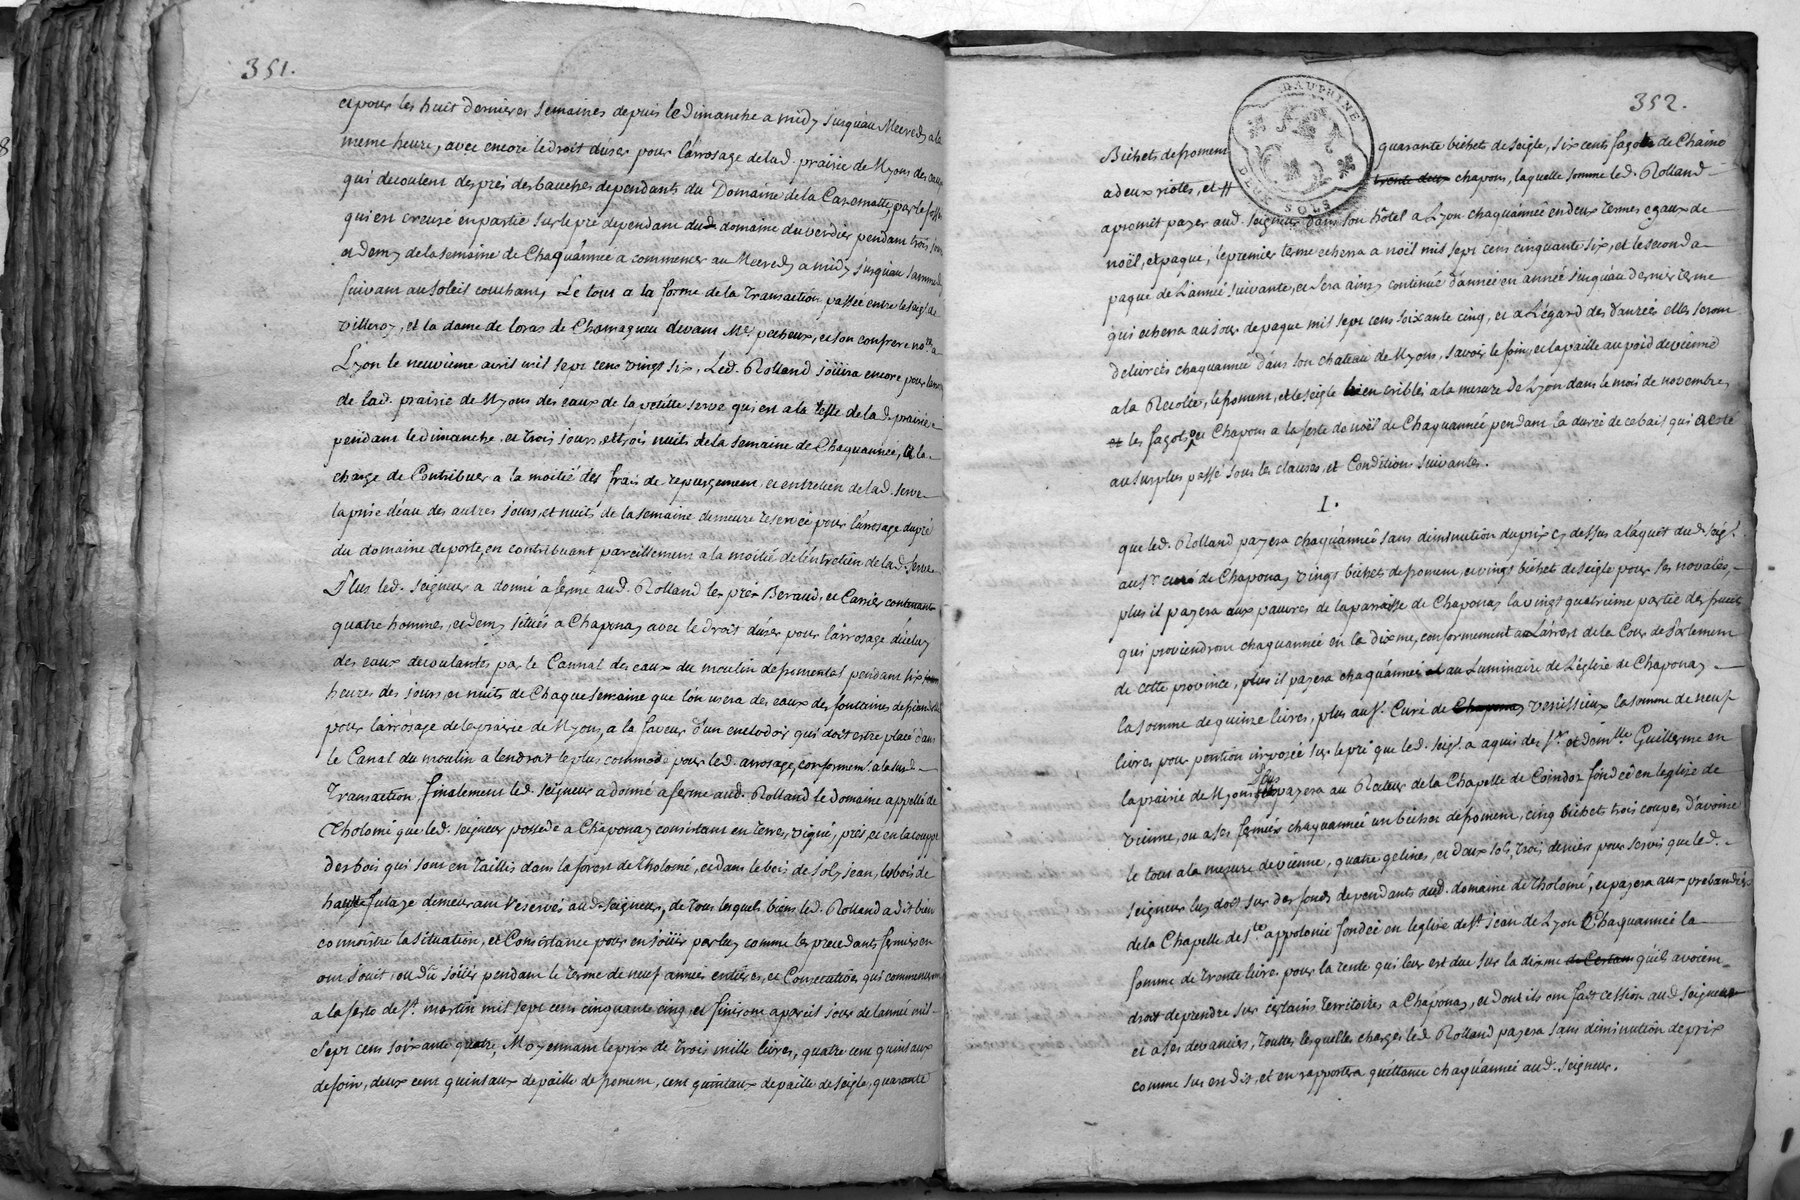 351.
et pour les huit dernieres semaines depuis le Dimanche a midy jusqu'au Mecredy a la
meme heure, avec encore le droit d'user pour l'arrosage de lad. prairie de Myons des eaux
qui decoulent des prés des bauches dependants du Domaine de la Cazematte, par le fossé
qui est creusé en partie sur le pré dependant dud. domaine du verdier pendant trois jours
et demy de la semaine de Chaquânnée a commencer au Mecredy a midy jusqu'au sammedy
suivant au soleil couchant, Le tout a la forme de la Transaction passée entre le seigr. de
villeroy, et la dame de loras de Chamagnieu devant Me. pecheux, et son confrere nores. a
Lyon le neuvieme avril mil sept cens vingt six, Led. Rolland joüira encore pour
de lad. prairie de Myons des eaux de la petitte serve qui est a la teste de lad. prairie
pendant le dimanche, et trois jours et trois nuits de la semaine de Chaquannée, a la
charge de Contribuer a la moitié des frais de repurgement et entretien de lad. serve
la prise d'eau des autres jours, et nuits de la semaine demeure reservée pour l'arrosage du pré
du domaine de porte, en contribuant pareillement a la moitié de l'entretien de lad. serve
Plus led. seigneur a donné a ferme aud. Rolland les prés Beraud, et Carrier contenant
quatre hommes, et demy situés a Chaponay avec le droit d'user pour l'arrosage d'iceluy
des eaux decoulantes par le Cannal des eaux du moulin de fromental pendant six
heures des jours et nuits de Chaque semaine que l'on usera des eaux des fontaines de
pour l'arrosage de la prairie de Myons, a la faveur d'un enclodoir qui doit estre placé dans
le Canal du moulin a lendroit le plus commode pour led. arrosage, conformemt. a la susd.
Transaction, finalement led. seigneur a donné a ferme aud. Rolland le domaine appellé de
Tholomé que led. seigneur possede a Chaponay consistant en terres, vigne, prés, et en la couppe
des bois qui sont en taillis dans la forest de tholomé, et dans le bois de soly jean, les bois de
haute futaye demeurant reservés aud. seigneur, de tous lesquels biens led. Rolland a dit bien
connoitre la situation, et Consistance pour en joüir par luy comme les precedants fermiers en
ont joüit, ou dû joüir pendant le terme de neuf années entieres, et Consecutives qui commenceront
a la feste de St. martin mil sept cens cinquante cinq, et finiront a pareil jour de lannée mil
sept cens soixante quatre, Moyennant le prix de trois mille livres, quatre cent quintaux
de foin, deux cent quintaux de paille de froment, cent quintaux de paille de seigle, quarante
352.
DAUPHINE
DEUX SOLS
Bichets de froment quarante bichets de seigle, six cents fagots de Chaine
a deux riotes, et trente deux chapons, laquelle somme led. Rolland
a promit payer aud. seigneur dans son hôtel a Lyon chaquânnée en deux termes egaux de
noël, et paque, le premier terme echerra a noël mil sept cens cinquante six, et le second a
paque de L'année suivante, et sera ainsy continué d'année en année jusqu'au dernier terme
qui echerra au jour de paque mil sept cens soixante cinq, et a L'égard des danrées elles seront
delivrées chaquannée dans son chateau de Myons, savoir le foin, et la paille au poid de vienne
a la Recolte, le froment, et le seigle bien criblés a la mesure de Lyon dans le mois de novembre,
et les fagots, et Chapons a la feste de noël de Chaquannée pendant la durée de ce bail qui a esté
au surplus passé sous les clauses, et Conditions suivantes.
I.
que led. Rolland payera chaquânnée sans diminution du prix cy dessus a l'aquit dud. seigr.
au sr. curé de Chaponay vingt bichets de froment, et vingt bichets de seigle pour ses novales,
plus il payera aux pauvres de la paroisse de Chaponay la vingt quatrieme partie des fruits
qui proviendront chaquannée en la dixme, conformement a L'arrest de la Cour de Parlement
de cette province, plus il payera chaquânnée au Luminaire de L'eglise de Chaponay
la somme de quinze livres, plus au sr. Curé de Chaponay venissieux la somme de neuf
livres pour pention imposée sur le pré que led. seigr. a aquis des sr. et demlle. Guillerme en
la prairie de Myons plus payera au Recteur de la Chapelle de Coindoz fondée en l'eglise de
vienne, ou a ses fermiers chaquannée un bichet de froment, cinq bichets trois coupes d'avoine
le tout a la mesure de vienne, quatre gelines, et deux sols, trois deniers pour servis que led.
seigneur luy doit sur des fonds dependants dud. domaine de tholomé, et payera aux prebandiers
de la Chapelle de Ste. appolonie fondée en leglise de St. jean de Lyon Chaquannée la
somme de trente livres pour la rente qui leur est due sur la dixme de Certains qu'ils avoient
droit de prendre sur certains territoires a Chaponay, et dont ils ont fait cession aud. seigneur
et a ses devanciers, Touttes lesquelles charges led. Rolland payera sans diminution de prix
comme sus est dit, et en rapportera quittance chaquânnée aud. seigneur.